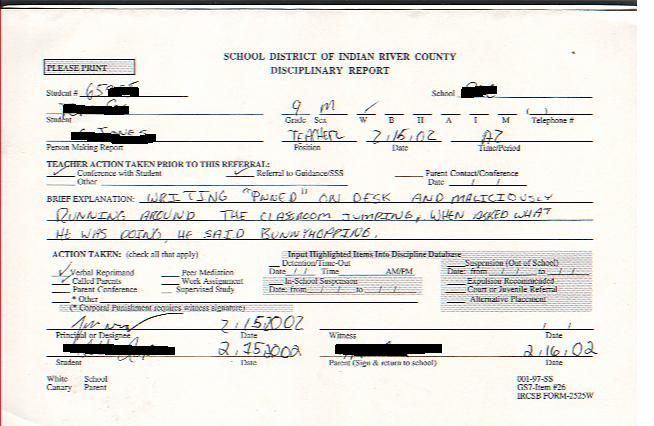 SCHOOL DISTRICT OF INDIAN RIVER COUNTY
DISCIPLINARY REPORT
PLEASE PRINT
Student #
School
9 M
Student Grade Sex W B H A I M Telephone #
TEACHER 2,15,02 A2
Person Making Report Position Date Time/Period
TEACHER ACTION TAKEN PRIOR TO THIS REFERRAL:
Conference with Student Referral to Guidance/SSS Parent Contact/Conference
Other Date / /
BRIEF EXPLANATION: WRITING "PWNED" ON DESK AND MALICIOUSLY
RUNNING AROUND THE CLASSROOM JUMPING, WHEN ASKED WHAT
HE WAS DOING, HE SAID BUNNYHOPPING.
ACTION TAKEN: (check all that apply) Input Highlighted Items Into Discipline Database
Detention/Time-Out Suspension (Out of School)
Verbal Reprimand Peer Mediation Date / / Time AM/PM Date: from / / to / /
Called Parents Work Assignment In-School Suspension Expulsion Recommended
Parent Conference Supervised Study Date: from / / to / / Court or Juvenile Referral
* Other Alternative Placement
(* Corporal Punishment requires witness signature)
2,15,2002 / /
Principal or Designee Date Witness Date
2,15,2002 2,16,02
Student Date Parent (Sign & return to school) Date
White School 001-97-SS
Canary Parent GS7-Item #26
IRCSB FORM-2525W